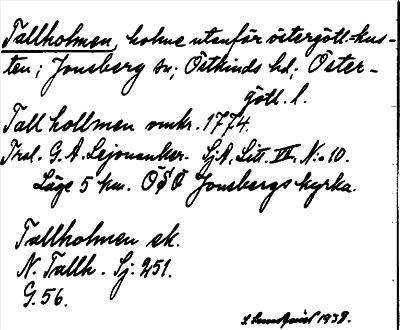 Tallholmen, holme utanför östergötl.-kus-
ten; Jonsberg sn; Östkinds hd; Öster-
götl. l.
Tall hollmen omkr. 1774.
Tral. G. A. Lejonanker. SjA, Litt. VII, N:o 10.
Läge 5 km. OSO Jonsbergs kyrka.
Tallholmen ek.
N. Tallh. Sj. 251.
G. 56.
1939.